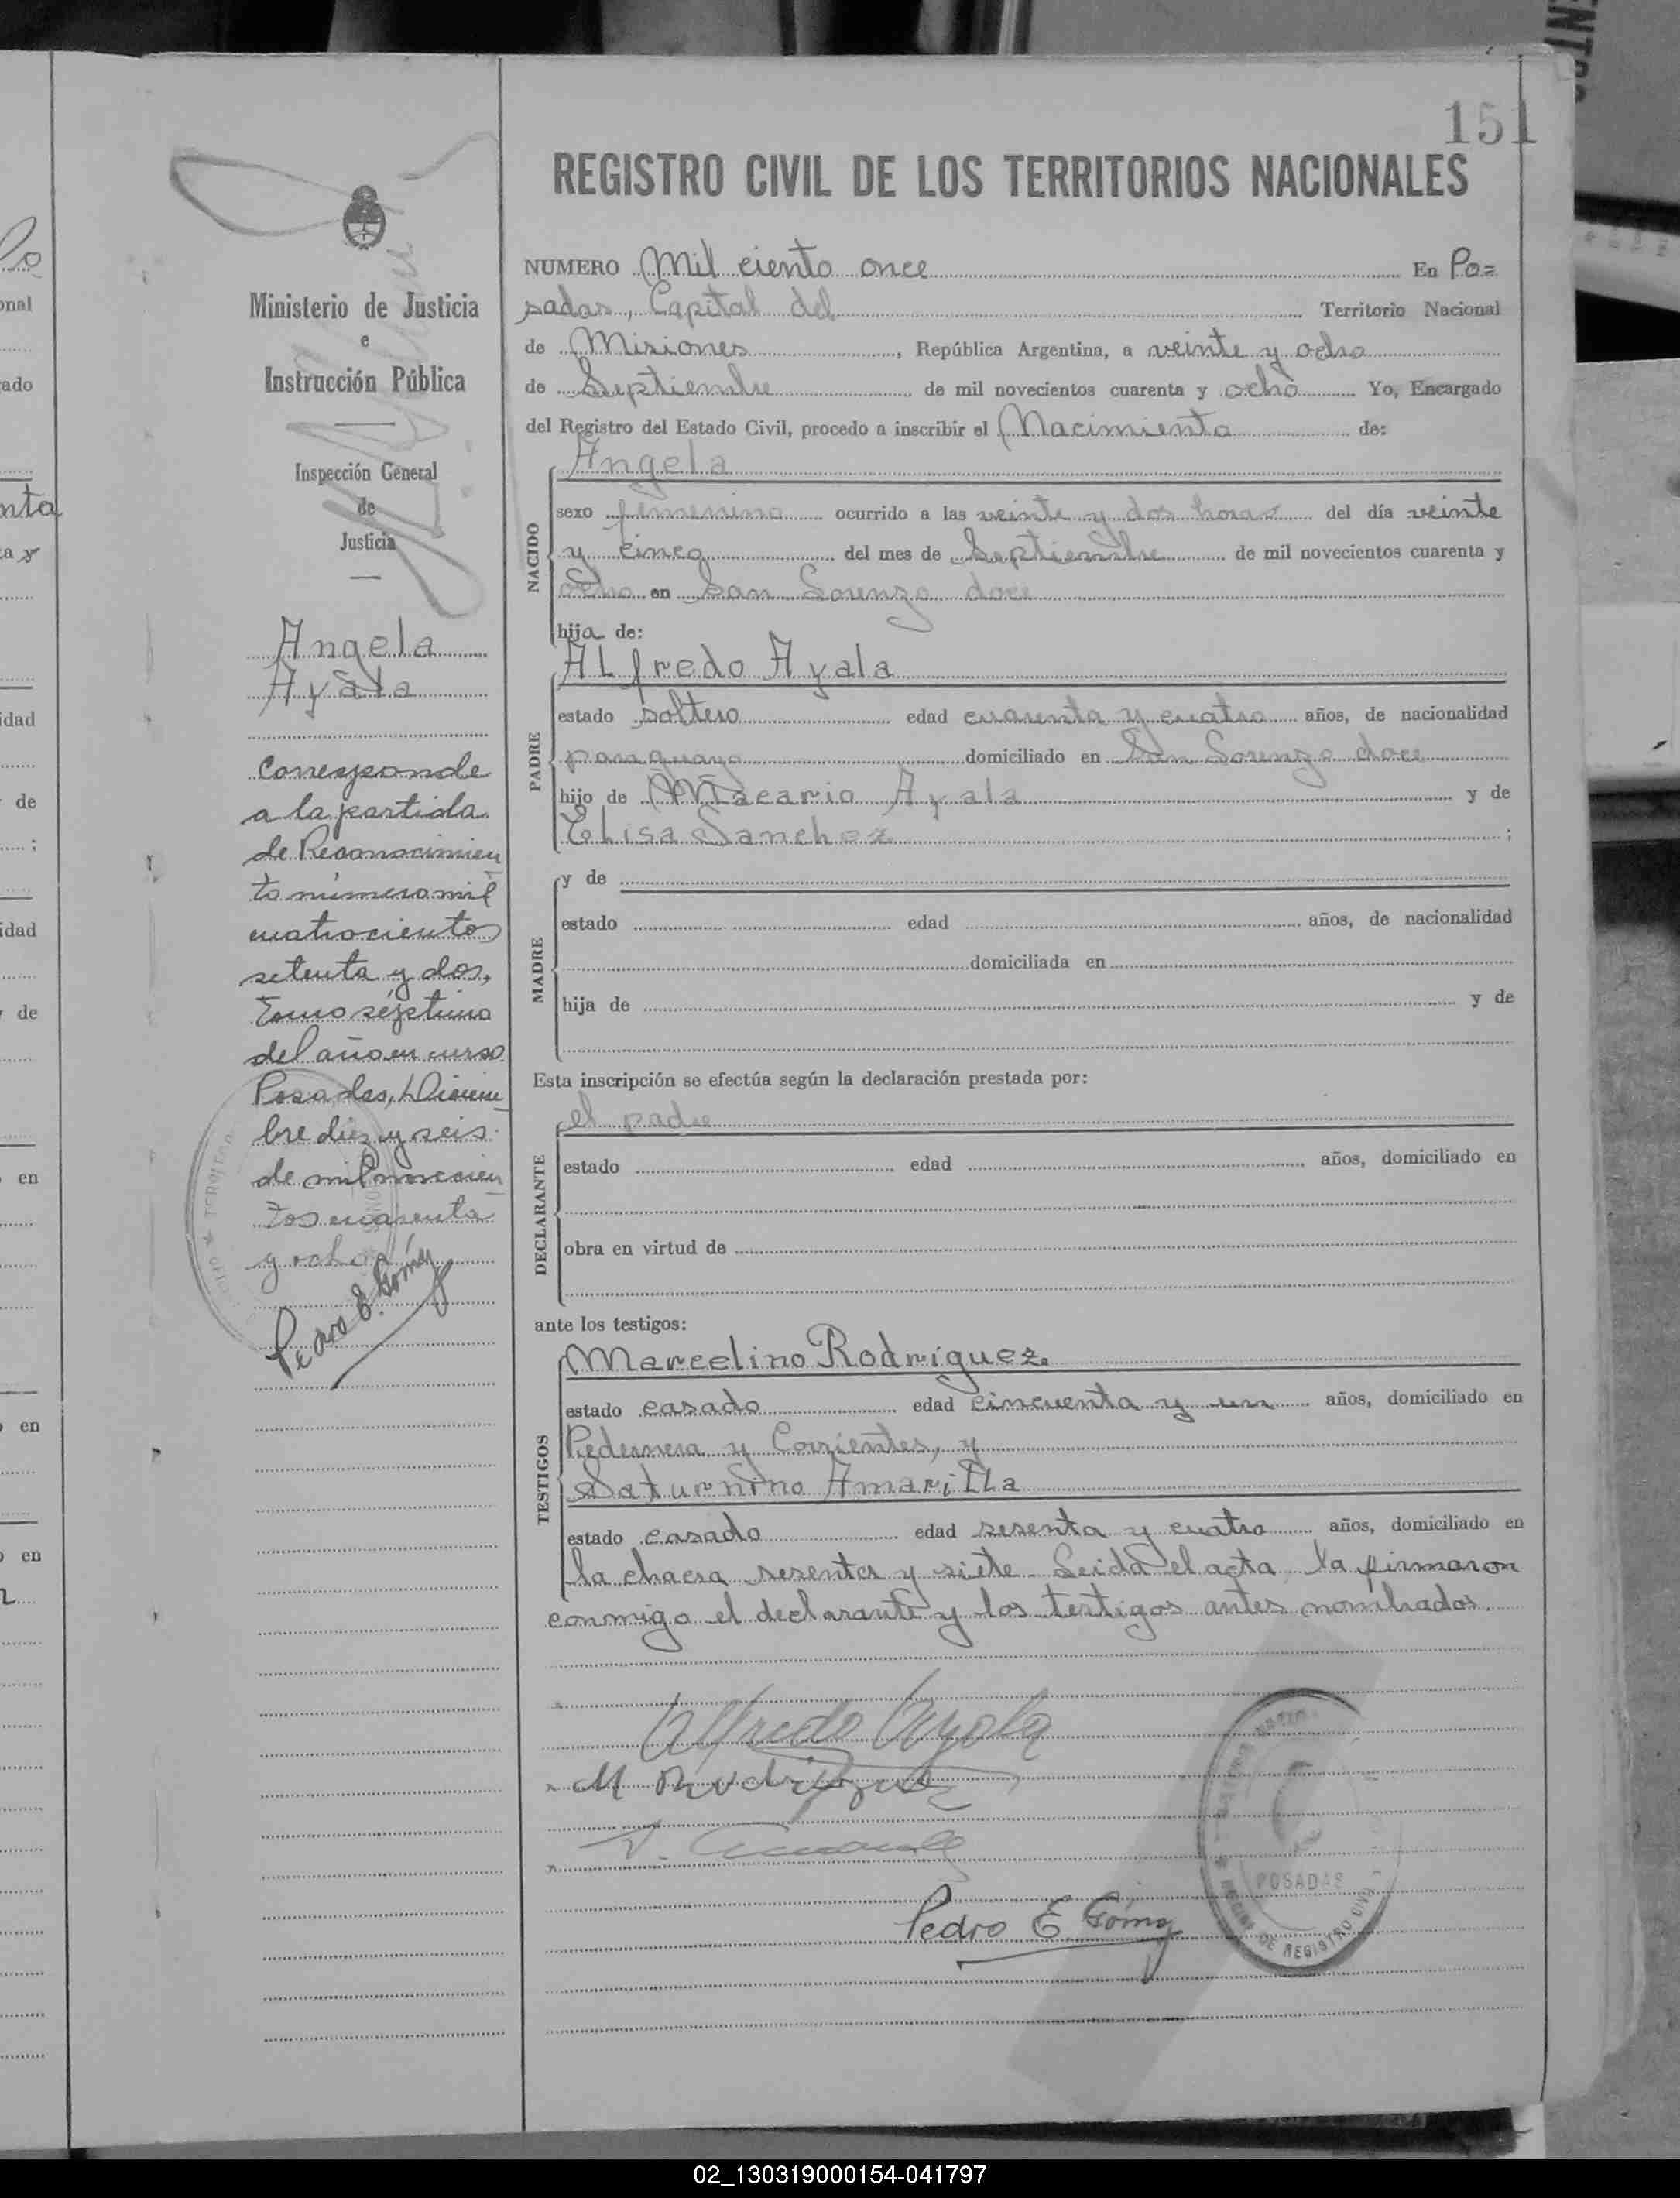 151
REGISTRO CIVIL DE LOS TERRITORIOS NACIONALES
Ministerio de Justicia
e
Instrucción Pública
Inspección General
de
Justicia
Angela
Ayala
Corresponde
a la partida
de Reconocimien
to número mil
cuatrocientos
setenta y dos,
Tomo séptimo
del año en curso
Posadas, Diciem
bre diez y seis
de mil novecien
tos cuarenta
y ocho
Pedro E. Gómez
NUMERO Mil ciento once En Po=
sadas, Capital del Territorio Nacional
de Misiones, República Argentina, a veinte y ocho
de Septiembre de mil novecientos cuarenta y ocho Yo, Encargado
del Registro del Estado Civil, procedo a inscribir el Nacimiento de:
NACIDO
Angela
sexo femenino ocurrido a las veinte y dos horas del día veinte
y cinco del mes de Septiembre de mil novecientos cuarenta y
ocho en San Lorenzo doce
hija de:
PADRE
Alfredo Ayala
estado soltero edad cuarenta y cuatro años, de nacionalidad
paraguayo domiciliado en San Lorenzo doce
hijo de Macario Ayala y de
Elisa Sanchez ;
MADRE
y de
estado edad años, de nacionalidad
domiciliada en
hija de y de
Esta inscripción se efectúa según la declaración prestada por:
DECLARANTE
el padre
estado edad años, domiciliado en
obra en virtud de
ante los testigos:
TESTIGOS
Marcelino Rodríguez
estado casado edad cincuenta y un años, domiciliado en
Pedernera y Corrientes, y
Saturnino Amarilla
estado casado edad sesenta y cuatro años, domiciliado en
la chacra sesenta y siete. Leida el acta, la firmaron
conmigo el declarante y los testigos antes nombrados.
Alfredo Ayala
M Rodriguez
Pedro E. Gómez
POSADAS
DE REGISTRO CIVIL
02_130319000154-041797